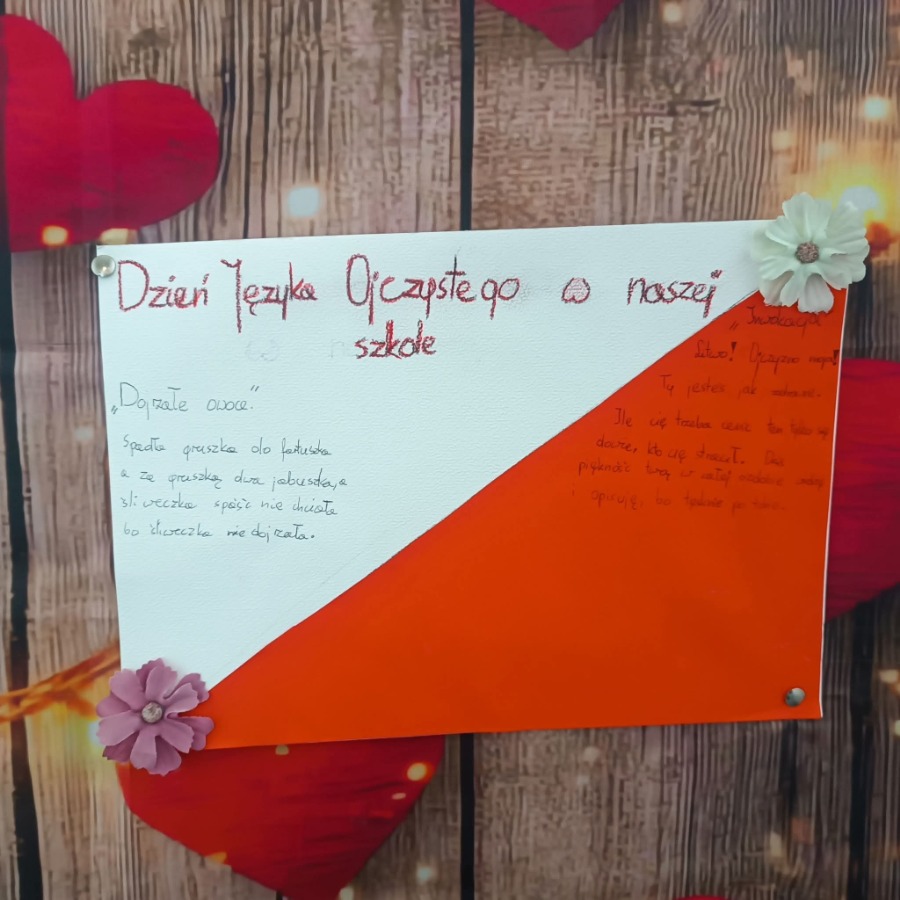 Dzień Języka Ojczystego w naszej
szkole
„Dojrzałe owoce."
Spadła gruszka do fartuszka
a za gruszką dwa jabuszka,a
śliweczka spaść nie chciała
bo śliweczka niedojrzała.
„Inwokacja
Litwo! Ojczyzno moja!
Ty jesteś jak zdrowie.
Ile cię trzeba cenić ten tylko się
dowie, kto cię stracił. Dziś
piękność twą w całej ozdobie widzę
i opisuję, bo tęsknię po tobie.